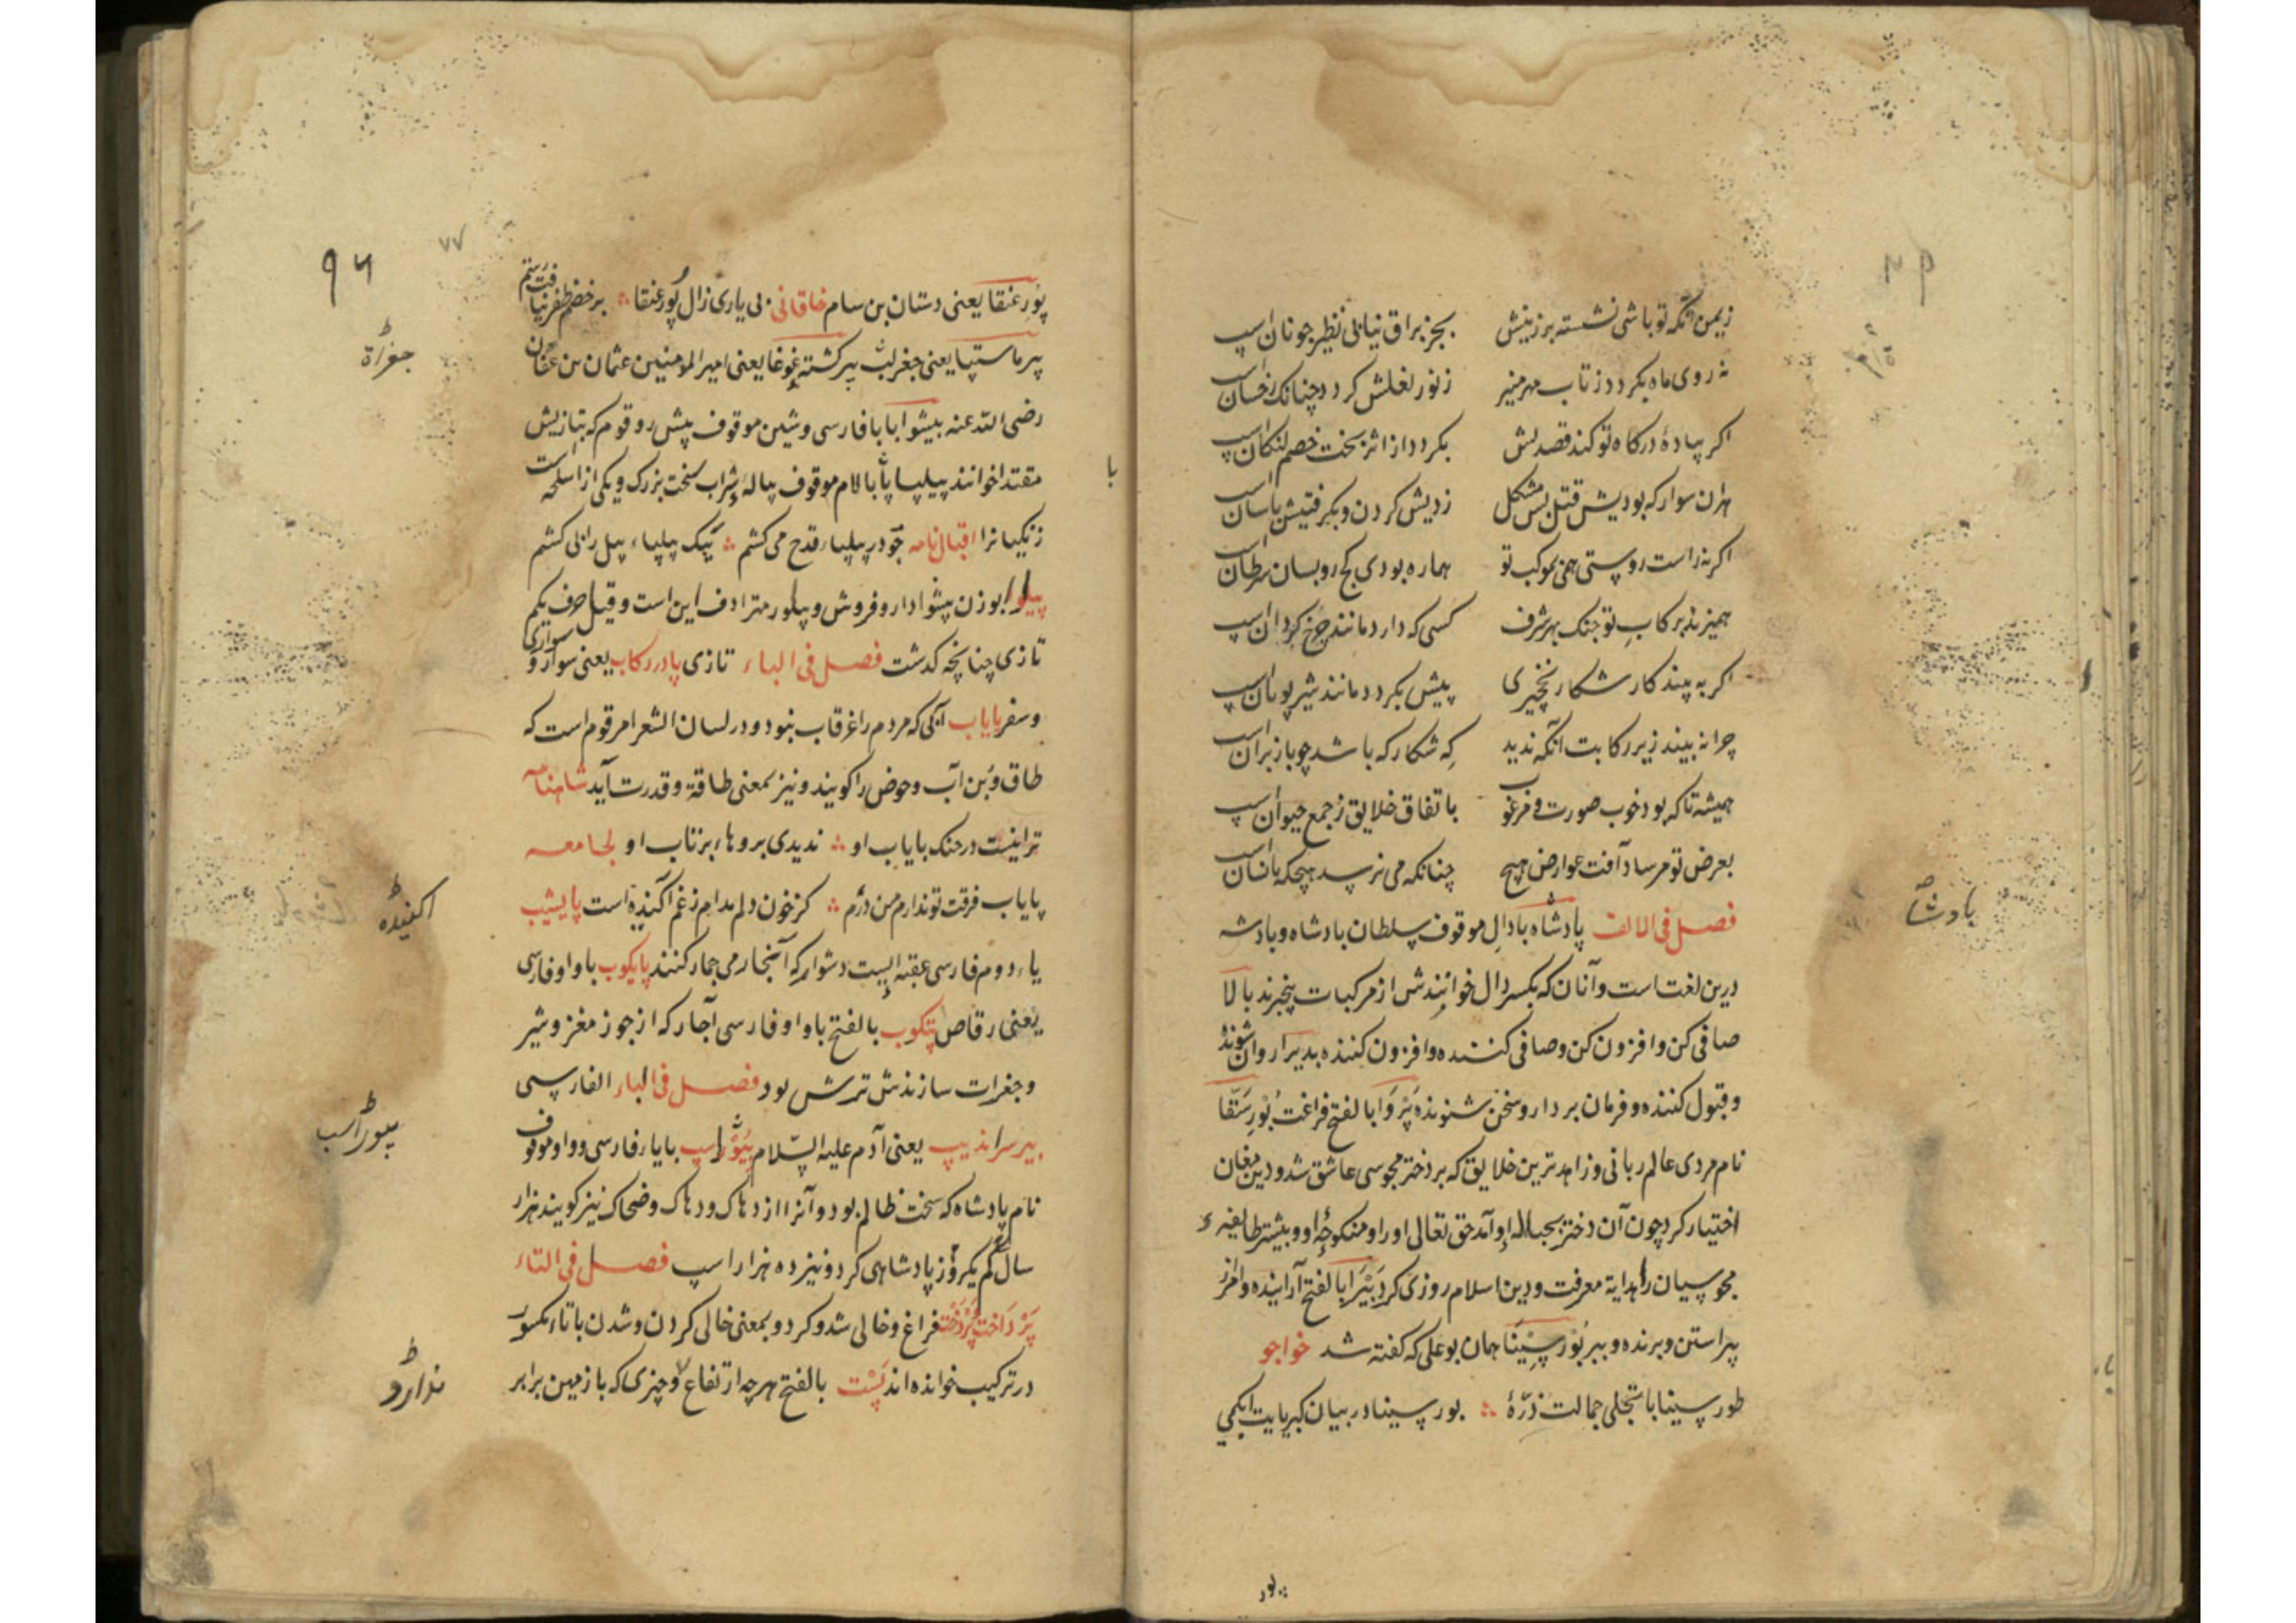 زیمن آنکه تو باشی نشسته بر زینش بجز براق نیابی نظیر جونان اسپ
نه روی ماه بکردد ز تاب مهر منیر ز نور لعلش کردد چنانک رخسان اسپ
اکر پیادهٔ درکاه تو کند قصدش بکردد از اثر بخت خصم لنکان اسپ
هران سوار که بودیش قتل بس مشکل زدیش کردن و بکرفتیش باسان اسپ
اکر نه راست روستی همی بموکب تو هماره بودی کج رو بسان سرطان اسپ
همیزند برکابِ تو جنک بهر شرف کسی که دارد مانند چرخ کردان اسپ
اکر به پیند کار شکار نخچیری پیش بکردد مانند شیر پویان اسپ
چرا نه بیند زیر رکابت آنکه ندید کِه شکار که باشد چو باز بران اسپ
همیشه تا که بود خوب صورت و مرغوب باتفاق خلایق ز جمع حیوان اسپ
بعرض تو مرساد آفت عوارض هیچ چنانکه می نرسد هیچکه بانسان اسپ
فصل فی الالف پادشاه بادالِ موقوف سلطان بادشاه و بادشه
درین لغت است و آنان که بکسر دال خوانندش از مرکبات بیخبرند بالا
صافی کن و افزون کن و صافی کننده و افزون کننده بدیرا روان شونده
و قبول کننده و فرمان بردار و سخن شنونده پَرْوَا بالفتح فراغت بُوْرِسَقّا
نام مردی عالم ربانی و زاهدترین خلایق که بر دختر مجوسی عاشق شد و دین مغان
اختیار کرد چون آن دختر بحباله او آمد حق تعالی او را و منکوحهٔ او و بیشتر طایفهٔ
مجوسیان را هدایة معرفت و دین اسلام روزی کرد بَیْرَا بالفتح آراینده و امر از
پیراستن و برنده و ببر بُوْرسِیْنَا همان بوعلی که کفته شد خواجو
طور سینا با تجلی جمالت ذرّهٔ بور سینا در بیان کبریایت ابکمی
پادشاه
بور
۹۶
۷۷
پُوْرِ عنقا یعنی دستان بن سام خاقانی بی یاری زال پُور عنقا بر خصم ظفر نیافت رستم
پیر ماستبا یعنی جغرات پیر کشته غوغا یعنی امیر المومنین عثمان بن عفان
رضی الله عنه پیشوا با با فارسی و شین موقوف پیش رو قوم که بتازیش
مقتدا خوانند پیلپا با لام موقوف پیالهٔ شراب سخت بزرک و یکی از اسلحه است
زنکیانرا اقبال نامه چو در پیلپاء قدح می کشم بیک پیلپاء پیل را پی کشم
پیلوا بوزن پیشوا دارو فروش و پیلور مترادف این است و قیل حرف یکم
تازی چنانچه کذشت فصل فی الباء تازی پا در رکاب یعنی سوار و سواری
و سفر پایاب آنکی که مردم را غرقاب نبود و در لسان الشعرا مرقوم است که
طاق و بُن آب و حوض را کویند و نیز بمعنی طاقة و قدرت آید شاهنامه
ترا نیست در جنک پایاب او ندیدی بروهاء برتاب او لجامعه
پایاب فرقت تو ندارم من درُم کز خون دلم مدام ز غم آکنده است پایشیب
یاء دوم فارسی عقبه ایست دشوار که آنجا رمی جمار کنند پایکوب با واو فارسی
یعنی رقاص پتکوب بالفتح با واو فارسی آچار که از جوز مغز و شیر
و جغرات سازندش ترش بود فصل فی الباء الفارسی
پیر سراندیب یعنی آدم علیه السّلام بیوراسپ با یاء فارسی و واو موقوف
نام پادشاه که سخت ظالم بود و آنرا ازدهاک و دهاک و ضحاک نیز کویند هزار
سال کم یکروز پادشاهی کرد و نیز ده هزار اسپ فصل فی التاء
پَرْدَاخت پَرْدَخْت فراغ و خالی شد و کرد و بمعنی خالی کردن و شدن با تاء مکسور
در ترکیب خوانده اند پَسْت بالفتح هر چه ارتفاع و چیزی که با زمین برابر
جغراة
اکنیده
بیوراسب
با